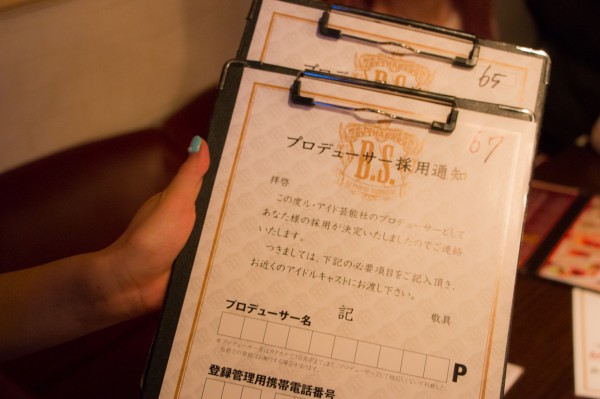 65
67
プロデューサー採用通知
B.S.
拝啓
この度ル・アイド芸能社のプロデューサーとして
あなた様の採用が決定いたしましたのでご連絡
いたします。
つきましては、下記の必要項目をご記入頂き、
お近くのアイドルキャストにお渡し下さい。
敬具
記
プロデューサー名
P
登録管理用携帯電話番号